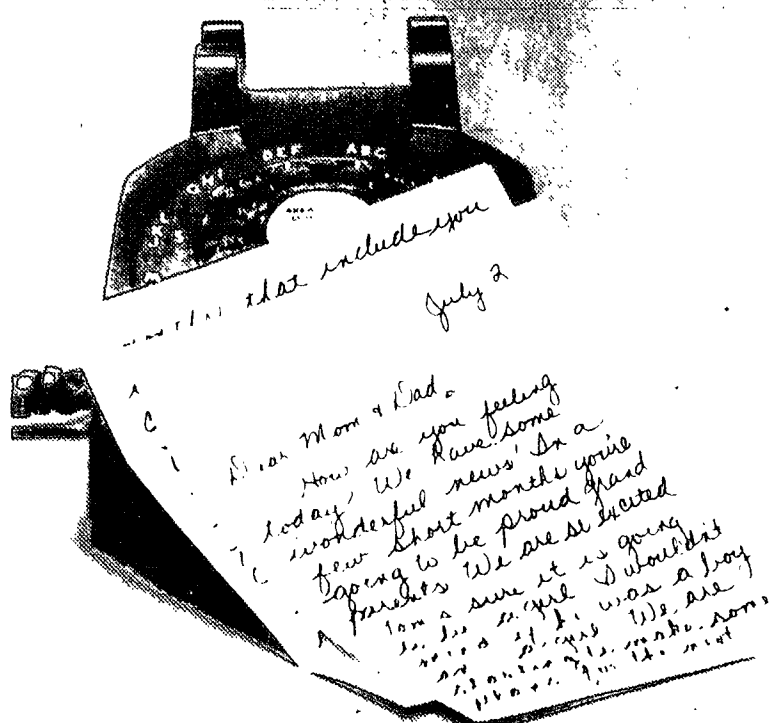 DEF ABC
GHI
that include you
July 2
Dear Mom & Dad,
How are you feeling
today, We have some
wonderful news! In a
few short months you're
going to be proud grand
parents We are so excited
Tom's sure it is going
to be a girl I wouldn't
mind if it was a boy
or a girl We are
planning to make some
plans for the next